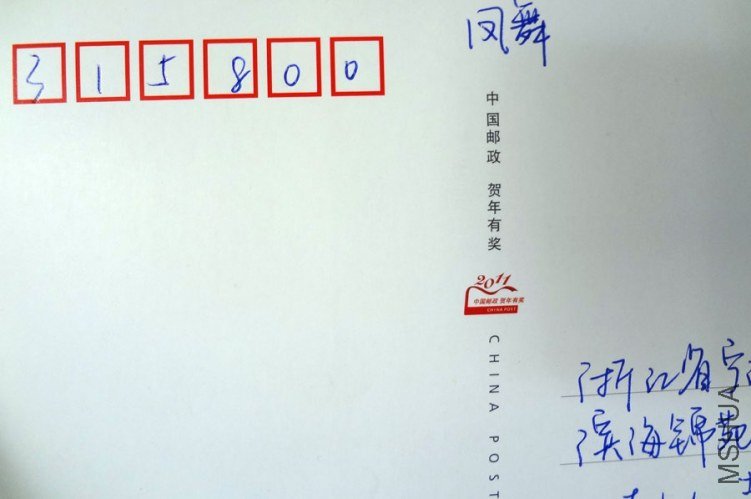 315800
凤舞
中国邮政 贺年有奖
2011
中国邮政 贺年有奖
CHINA POST
CHINA POST
浙江省宁
滨海锦苑
MSHUA